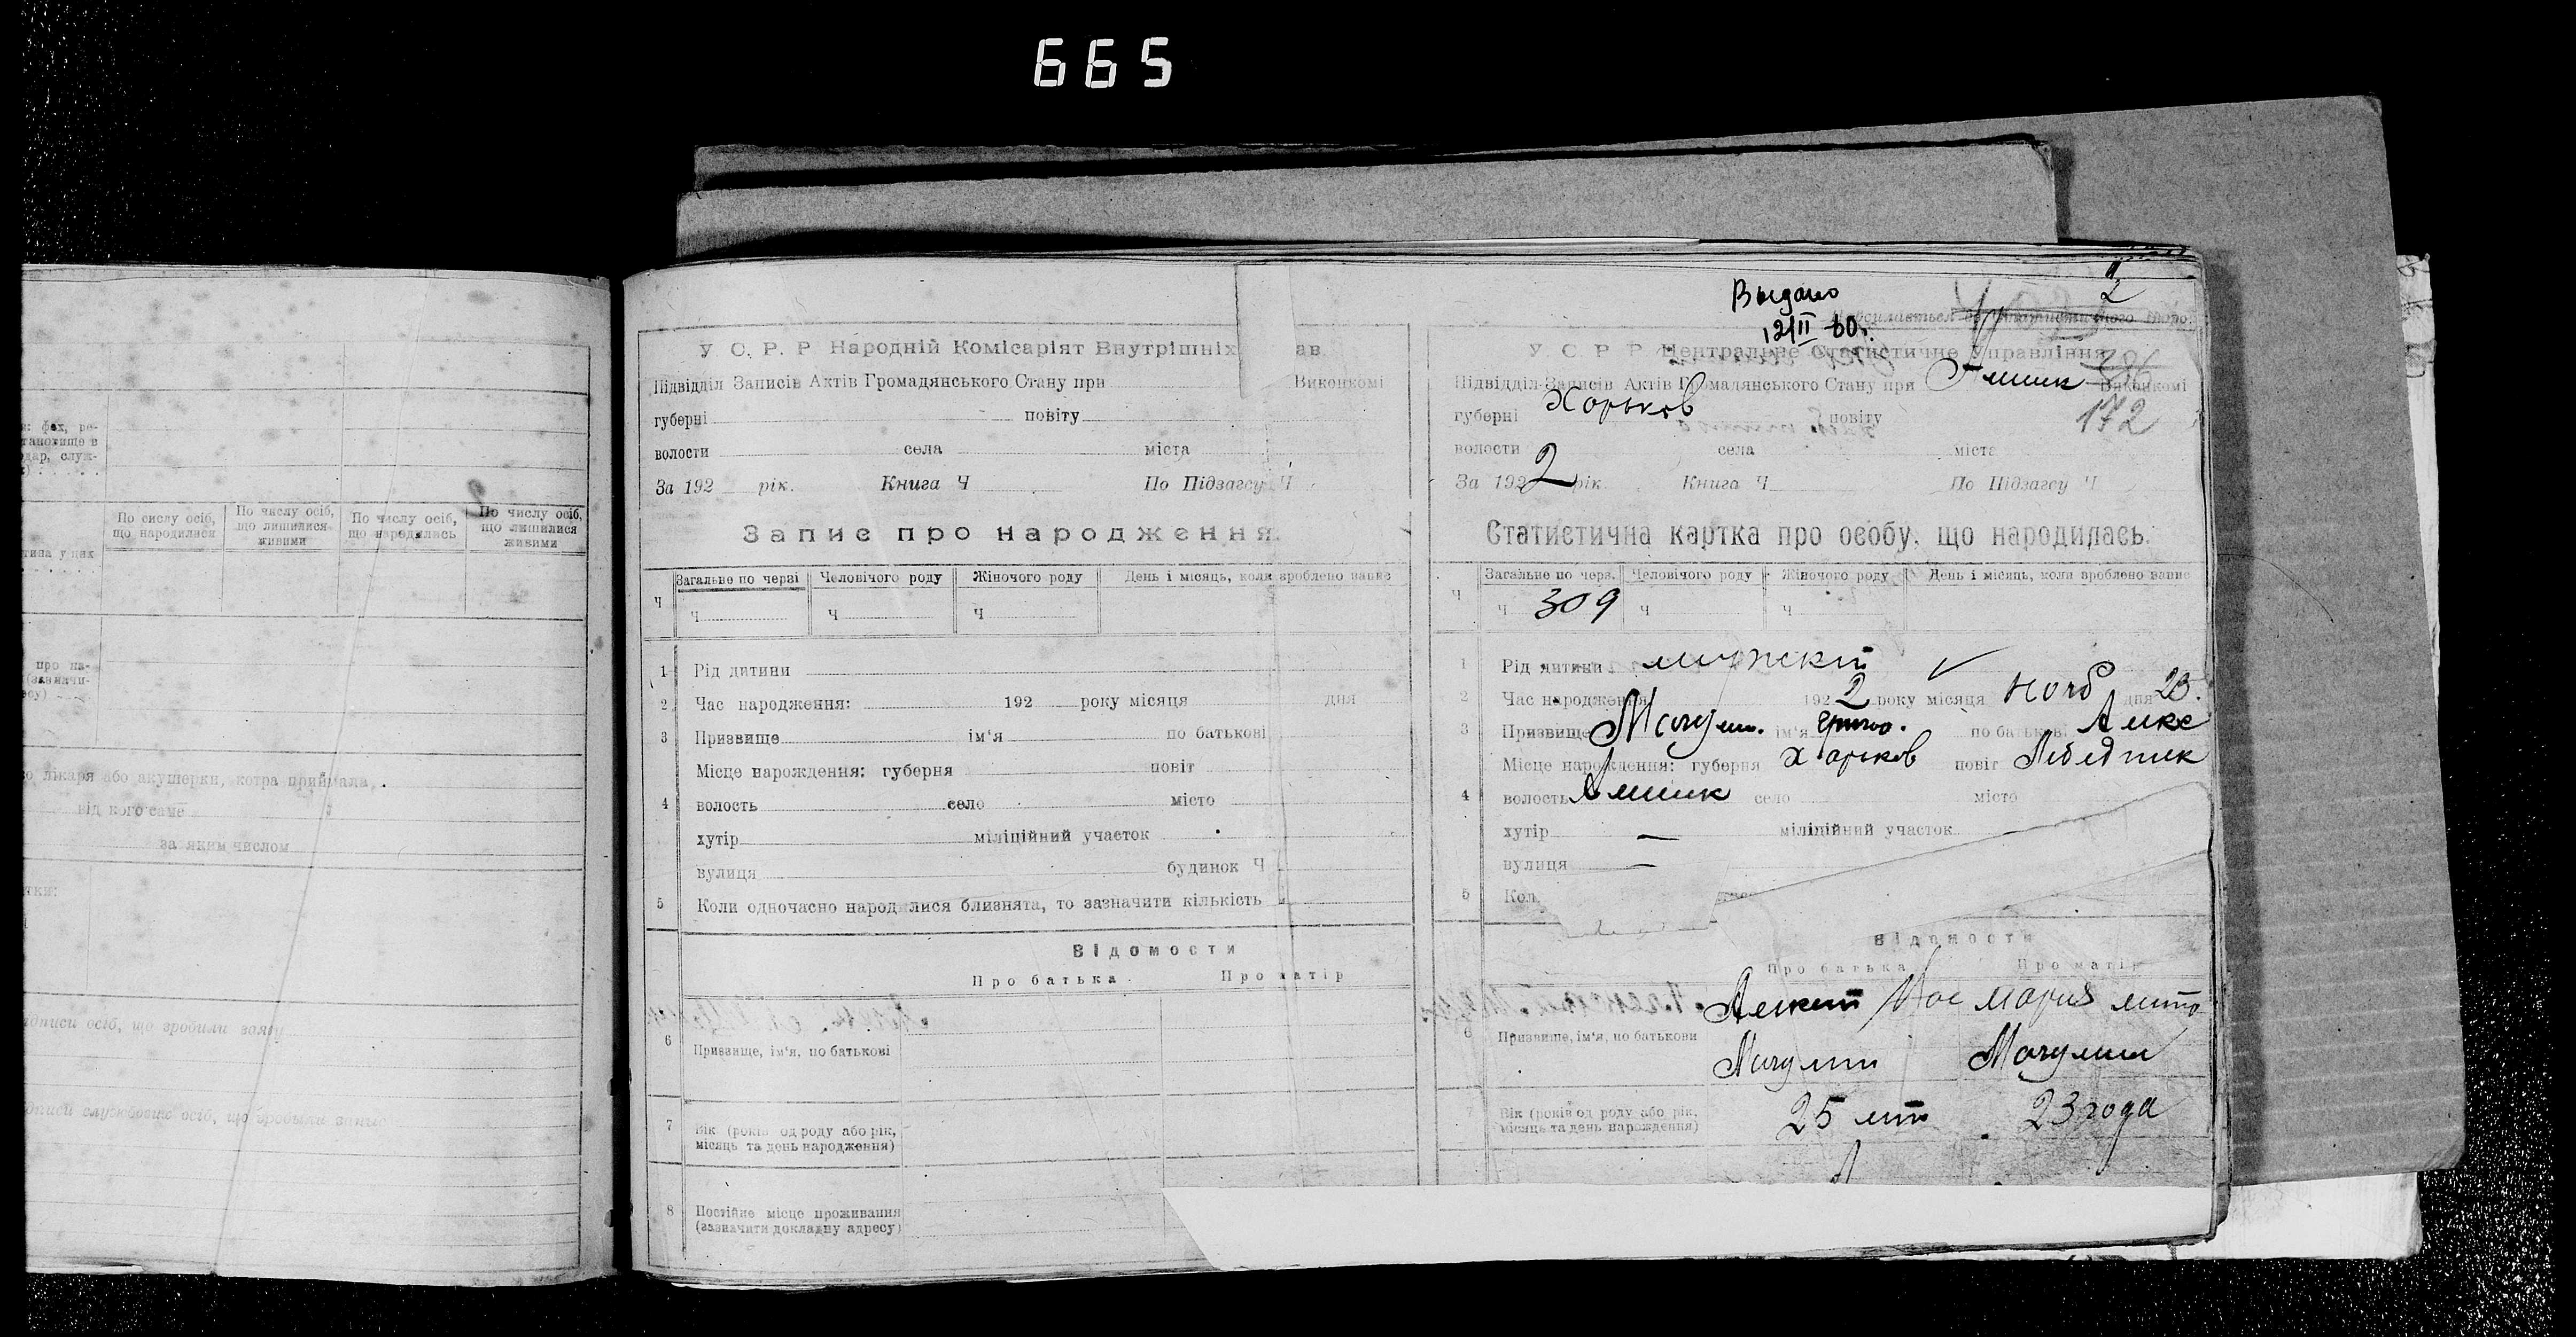 665
и: фах, ре-
дар, служ-
По числу осіб, що народилися
По числу осіб, що лишилися живими
По числу осіб, що народились
По числу осіб, що лишилися живими
про на-
(зазначи-
о лікаря або акушерки, котра приймала
від кого саме
за яким числом
тки:
дписи осіб, що зробили заяву
дписи службових осіб, що зробили запис
У. С. Р. Р Народній Комісаріят Внутрішніх ав
Підвідділ Записів Актів Громадянського Стану при Виконкомі
губерні повіту
волости села міста
За 192 рік. Книга Ч По Підзагсу Ч
Запис про народження.
Ч Загальне по черзі Человічого роду Жіночого роду День і місяць, коли зроблено запис
Ч Ч Ч
1 Рід дитини
2 Час народження: 192 року місяця дня
3 Призвище ім'я по батькові
Місце нарождення: губерня повіт
4 волость село місто
хутір міліційний участок
вулиця будинок Ч
5 Коли одночасно народ лися близнята, то зазначити кількість
Відомости
Про батька Про матір
6 Призвище, ім'я, по батькові
7 Вік (років од роду або рік,
місяць та день народження)
8 Постійне місце проживання
(зазначити докладну адресу)
2
Выдано
12/II 60г.
У С Р Р Центральне Статистичне Управління
Підвідділ Записів Актів Громадянського Стану при Виконкомі
губерні Харьков повіту 172
волости села міста
За 1922 рік Книга Ч По Підзагсу Ч
Статистична картка про особу, що народилась.
Ч Загальне по черз. Человічого роду Жіночого роду День і місяць, коли зроблено запис
Ч 309 Ч Ч
1 Рід дитини мужский
2 Час народження 1922 року місяця Нояб дня 23.
3 Призвище ім'я Григо. по батькові Алекс
Місце нарождення: губерня Харьков повіт Лебединск
4 волость село місто
хутір — міліційний участок
вулиця —
5 Кол
Відомости
Про батька Про матір
Алексей Мария
6 Призвище, ім'я, по батькови
7 Вік (років од роду або рік, 25 лет 23 года
місяць та день нарождення)